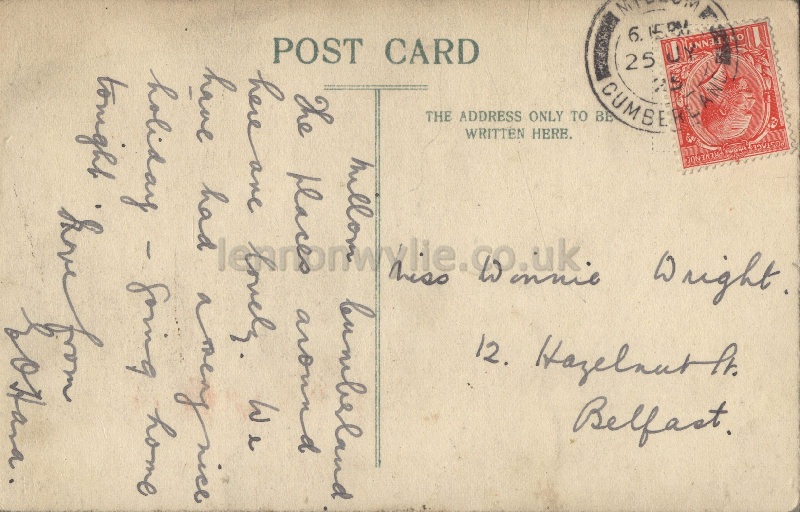 POST CARD
THE ADDRESS ONLY TO BE
WRITTEN HERE.
MILLOM
6.15PM
25 JY
25
CUMBERLAND
ONE PENNY
POSTAGE
REVENUE
Millom Cumberland
The places around
here are lovely. We
have had a very nice
holiday – going home
tonight.
Love from
O'Hara.
Miss Winnie Wright.
12. Hazelnut St.
Belfast.
lennonwylie.co.uk